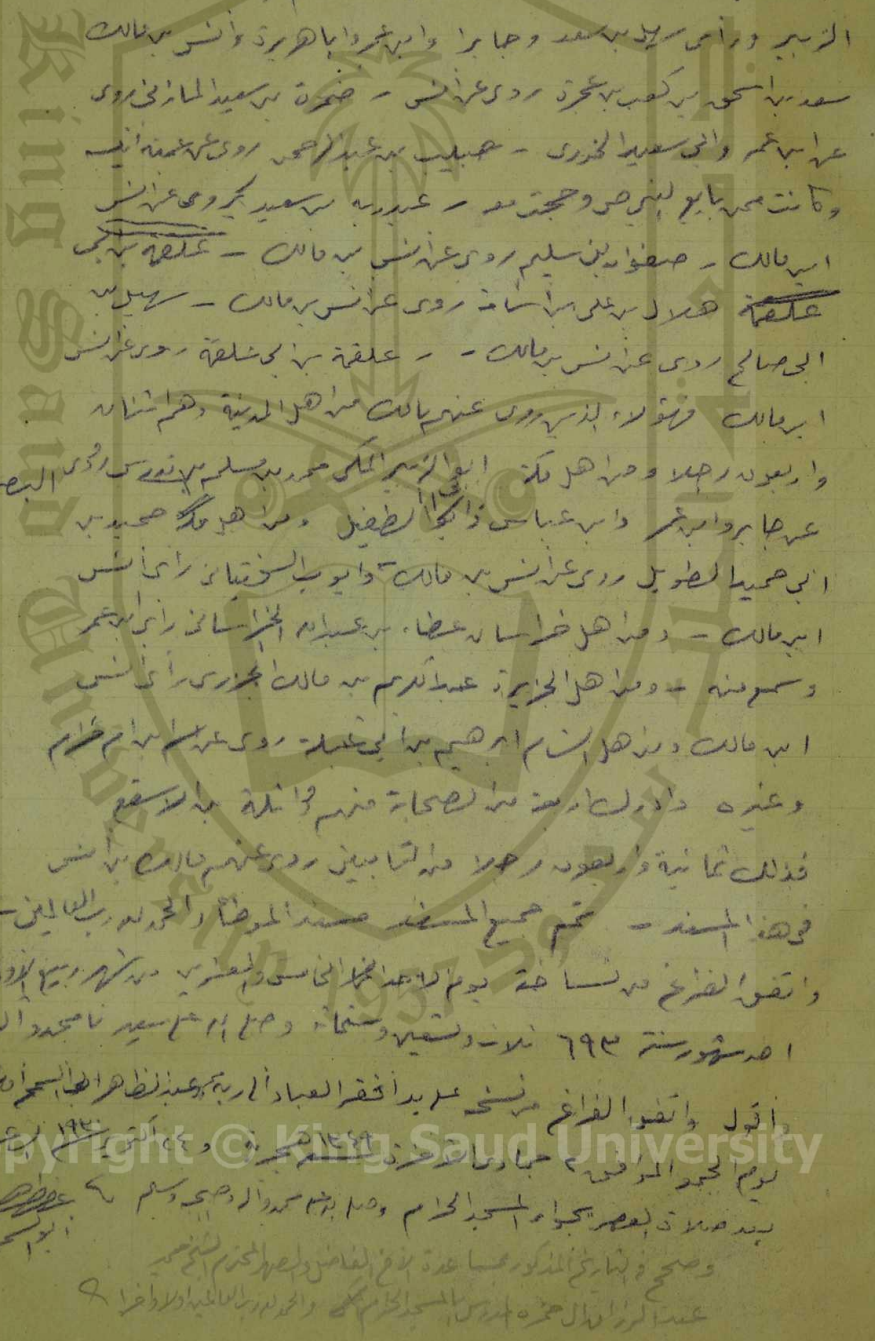 الزبير ورأى سهل بن سعد وجابرا وابن عمر وابا هريرة وأنس بن مالك
سعد بن اسحق بن كعب بن عجرة روى عن انس - ضمرة بن سعيد المازني روى
عن ابن عمر وابي سعيد الخدري - خبيب بن عبد الرحمن روى عن عمته انيسة
وكانت ممن بايع النبي ص وحجت معه - عبد ربه بن سعيد روى عن انس
ابن مالك - صفوان بن سليم روى عن انس بن مالك - علقمة بن أبي
علقمة هلال بن علي بن اسامة روى عن انس بن مالك - سهيل بن
ابي صالح روى عن انس بن مالك - - علقمة بن ابي علقمة روى عن انس
ابن مالك فهؤلاء الذين روى عنهم مالك من اهل المدينة وهم اثنان
واربعون رجلا ومن اهل مكة ابو الزبير المكي محمد بن مسلم بن تدرس روى
عن جابر وابن عمر وابن عباس وابي الطفيل ومن اهل حميد بن
ابي حميد الطويل روى عن انس بن مالك وايوب السختياني رأى أنس
ابن مالك - ومن اهل خراسان عطاء بن عبد الله الخراساني رأى ابن عمر
وسمع منه - ومن اهل الجزيرة عبد الكريم بن مالك الجزري رأى انس
ابن مالك ومن اهل الشام ابرهيم بن أبي عبلة روى عن ابن ام حرام
وغيره وادرك اربعة من الصحابة منهم واثلة بن الاسقع
فذلك ثمانية واربعون رجلا من التابعين روى عنهم مالك بن أنس
في هذا المسند - تم جميع المسند مسند الموطأ والحمد لله رب العالمين -
واتفق الفراغ من نساخته يوم الاحد الخامس والعشرين من شهر ربيع
احد شهور سنة ٦٩٣ ثلاث وتسعين وستمائة وصلى الله على سيدنا محمد
واقول واتفق الفراغ من نسخه على يد أفقر العباد الى ربه عبد الظاهر ابي السمح
يوم الجمعة الموافق ٢ جمادى الآخرة ١٣٤٩ هجرية و ٢٤ أكتوبر ١٩٣٠
بعد صلاة العصر بجوار المسجد الحرام وصلى الله على محمد وآله وصحبه وسلم
وصحح في التاريخ المذكور بمساعدة الأخ الفاضل والصهر المحترم الشيخ محمد
عبد الرزاق ال حمزة المدرس بالمسجد الحرام والحمد لله رب العالمين اولا واخرا
King Saud University
1957
Copyright © King Saud University